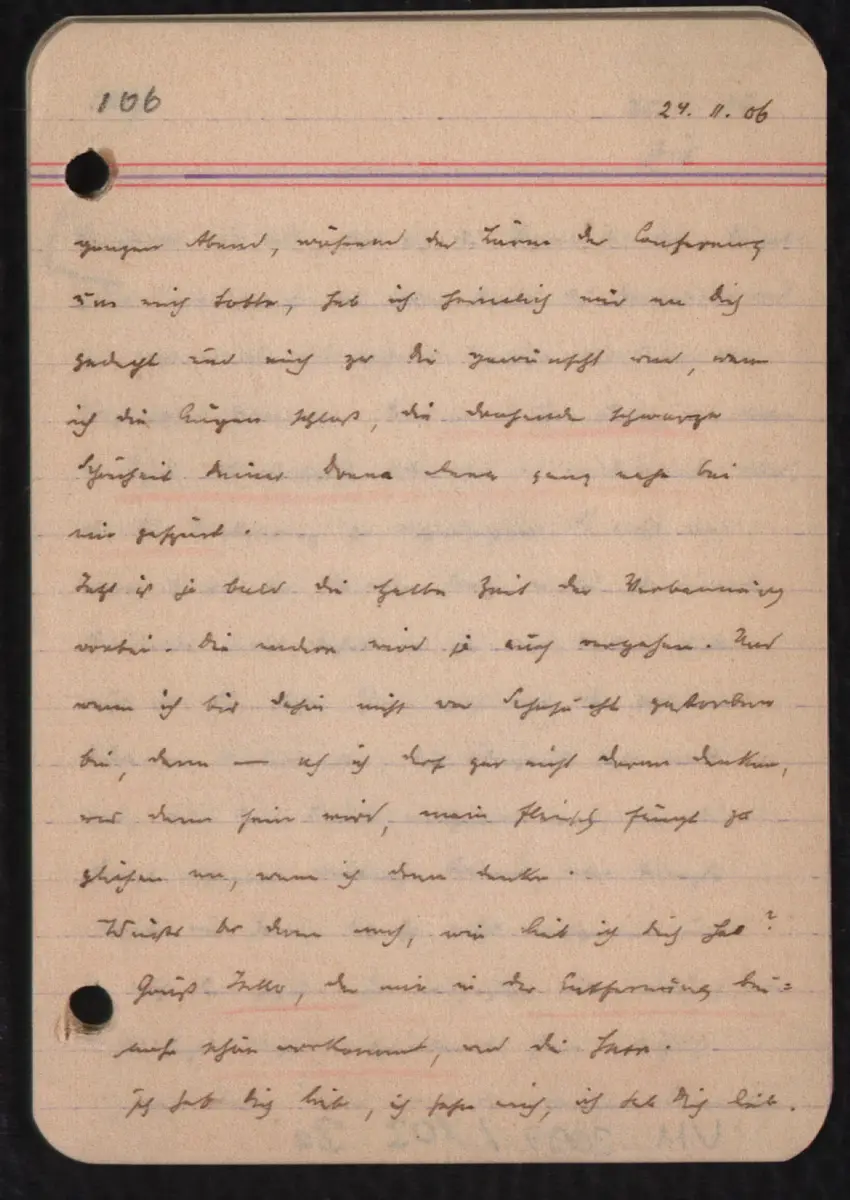 106
24. II. 06
ganzen Abend, während der Lärm der Conferenz
um mich tobte, hab ich heimlich nur an Dich
gedacht und mich zu Dir gewünscht und, wenn
ich die Augen schloß, die drohende schwarze
Schönheit Deiner dann ganz nahe bei
mir gespürt.
Jetzt ist ja bald die halbe Zeit der Verbannung
vorbei. Die andere wird ja auch vergehen. Und
wenn ich bis dahin nicht vor Sehnsucht gestorben
bin, dann — ach ich darf gar nicht daran denken,
was dann sein wird, mein Fleisch fängt zu
glühen an, wenn ich dran denke.
Weißt Du denn auch, wie lieb ich Dich hab?
Grüß, der mir in der Entfernung bei=
nahe schön vorkommt, und die
Ich hab Dich lieb, ich sehne mich, ich hab Dich lieb.